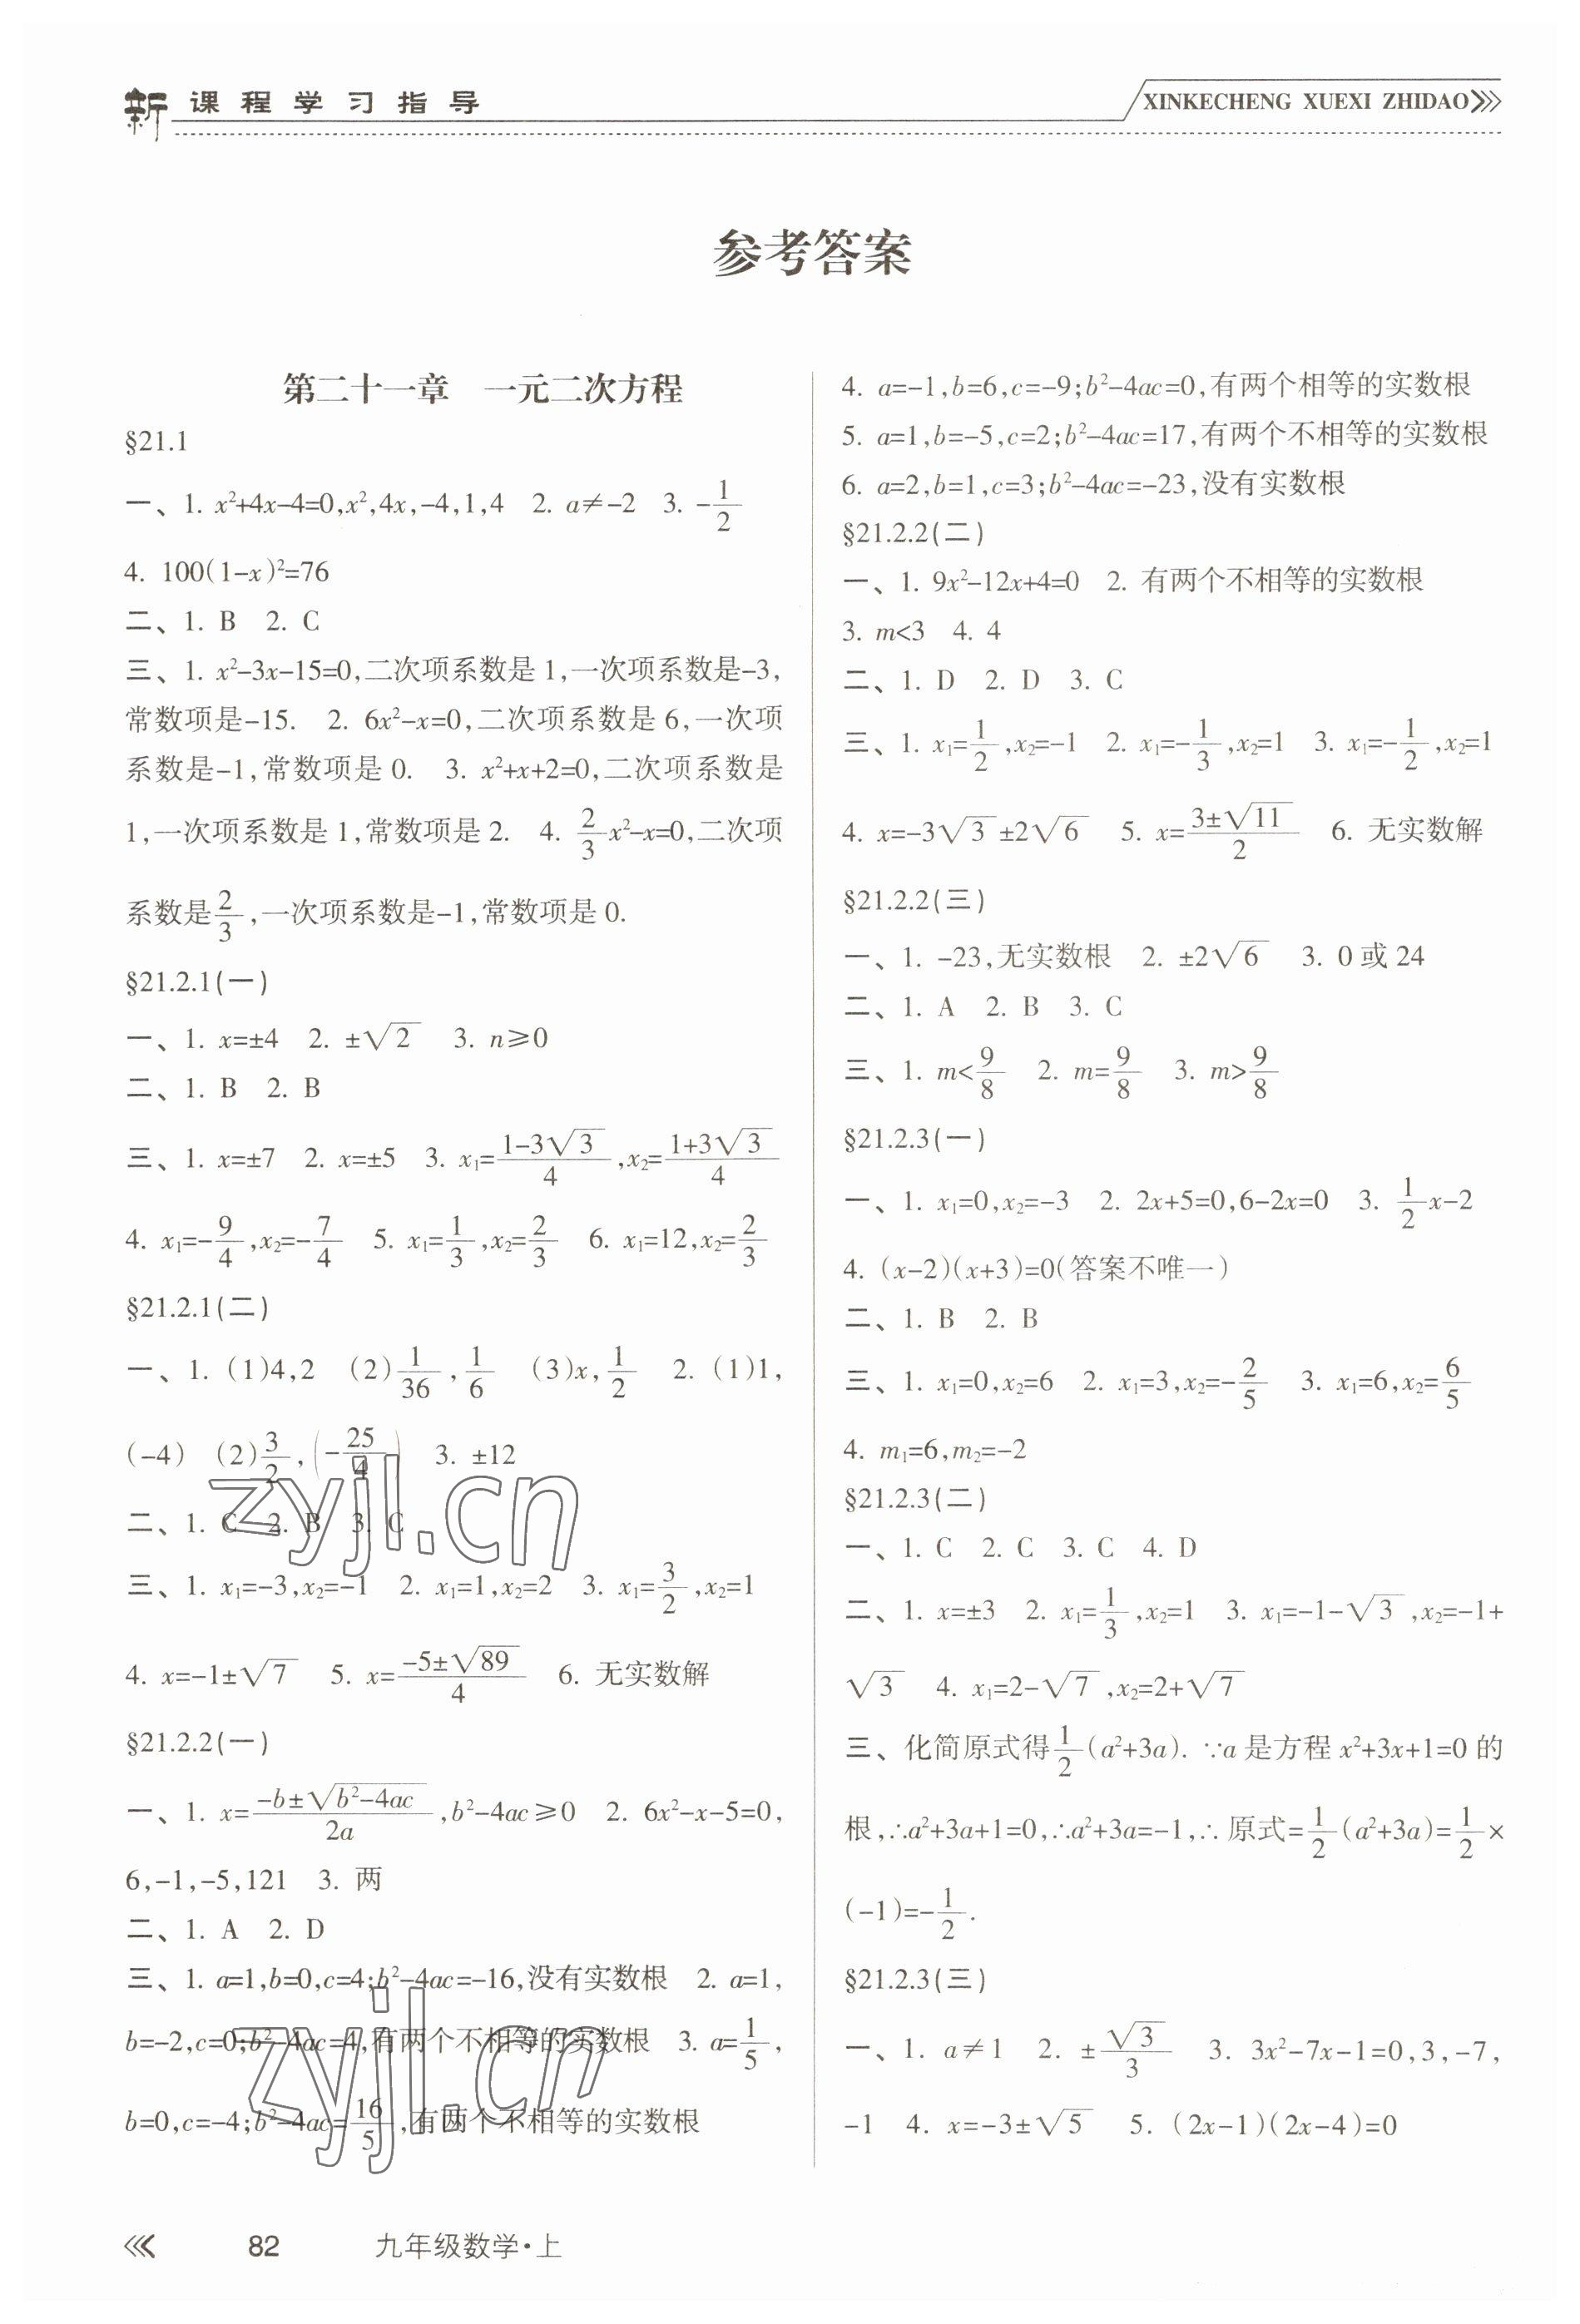 新课程学习指导
XINKECHENG XUEXI ZHIDAO
参考答案
第二十一章 一元二次方程
§21.1
一、1. x²+4x-4=0,x²,4x,-4,1,4 2. a≠-2 3. -1/2
4. 100(1-x)²=76
二、1. B 2. C
三、1. x²-3x-15=0,二次项系数是1,一次项系数是-3,
常数项是-15. 2. 6x²-x=0,二次项系数是6,一次项
系数是-1,常数项是0. 3. x²+x+2=0,二次项系数是
1,一次项系数是1,常数项是2. 4. 2/3x²-x=0,二次项
系数是2/3,一次项系数是-1,常数项是0.
§21.2.1(一)
一、1. x=±4 2. ±√2 3. n≥0
二、1. B 2. B
三、1. x=±7 2. x=±5 3. x₁=(1-3√3)/4,x₂=(1+3√3)/4
4. x₁=-9/4,x₂=-7/4 5. x₁=1/3,x₂=2/3 6. x₁=12,x₂=2/3
§21.2.1(二)
一、1. (1)4,2 (2)1/36,1/6 (3)x,1/2 2. (1)1,
(-4) (2)3/2,(-25/4) 3. ±12
二、1. C 2. B 3. C
三、1. x₁=-3,x₂=-1 2. x₁=1,x₂=2 3. x₁=3/2,x₂=1
4. x=-1±√7 5. x=(-5±√89)/4 6. 无实数解
§21.2.2(一)
一、1. x=(-b±√(b²-4ac))/2a,b²-4ac≥0 2. 6x²-x-5=0,
6,-1,-5,121 3. 两
二、1. A 2. D
三、1. a=1,b=0,c=4;b²-4ac=-16,没有实数根 2. a=1,
b=-2,c=0;b²-4ac=4,有两个不相等的实数根 3. a=1/5,
b=0,c=-4;b²-4ac=16/5,有两个不相等的实数根
4. a=-1,b=6,c=-9;b²-4ac=0,有两个相等的实数根
5. a=1,b=-5,c=2;b²-4ac=17,有两个不相等的实数根
6. a=2,b=1,c=3;b²-4ac=-23,没有实数根
§21.2.2(二)
一、1. 9x²-12x+4=0 2. 有两个不相等的实数根
3. m<3 4. 4
二、1. D 2. D 3. C
三、1. x₁=1/2,x₂=-1 2. x₁=-1/3,x₂=1 3. x₁=-1/2,x₂=1
4. x=-3√3±2√6 5. x=(3±√11)/2 6. 无实数解
§21.2.2(三)
一、1. -23,无实数根 2. ±2√6 3. 0或24
二、1. A 2. B 3. C
三、1. m<9/8 2. m=9/8 3. m>9/8
§21.2.3(一)
一、1. x₁=0,x₂=-3 2. 2x+5=0,6-2x=0 3. 1/2x-2
4. (x-2)(x+3)=0(答案不唯一)
二、1. B 2. B
三、1. x₁=0,x₂=6 2. x₁=3,x₂=-2/5 3. x₁=6,x₂=6/5
4. m₁=6,m₂=-2
§21.2.3(二)
一、1. C 2. C 3. C 4. D
二、1. x=±3 2. x₁=1/3,x₂=1 3. x₁=-1-√3,x₂=-1+
√3 4. x₁=2-√7,x₂=2+√7
三、化简原式得1/2(a²+3a). ∵a是方程x²+3x+1=0的
根,∴a²+3a+1=0,∴a²+3a=-1,∴原式=1/2(a²+3a)=1/2×
(-1)=-1/2.
§21.2.3(三)
一、1. a≠1 2. ±√3/3 3. 3x²-7x-1=0,3,-7,
-1 4. x=-3±√5 5. (2x-1)(2x-4)=0
zyjl.cn
zyjl.cn
82 九年级数学·上